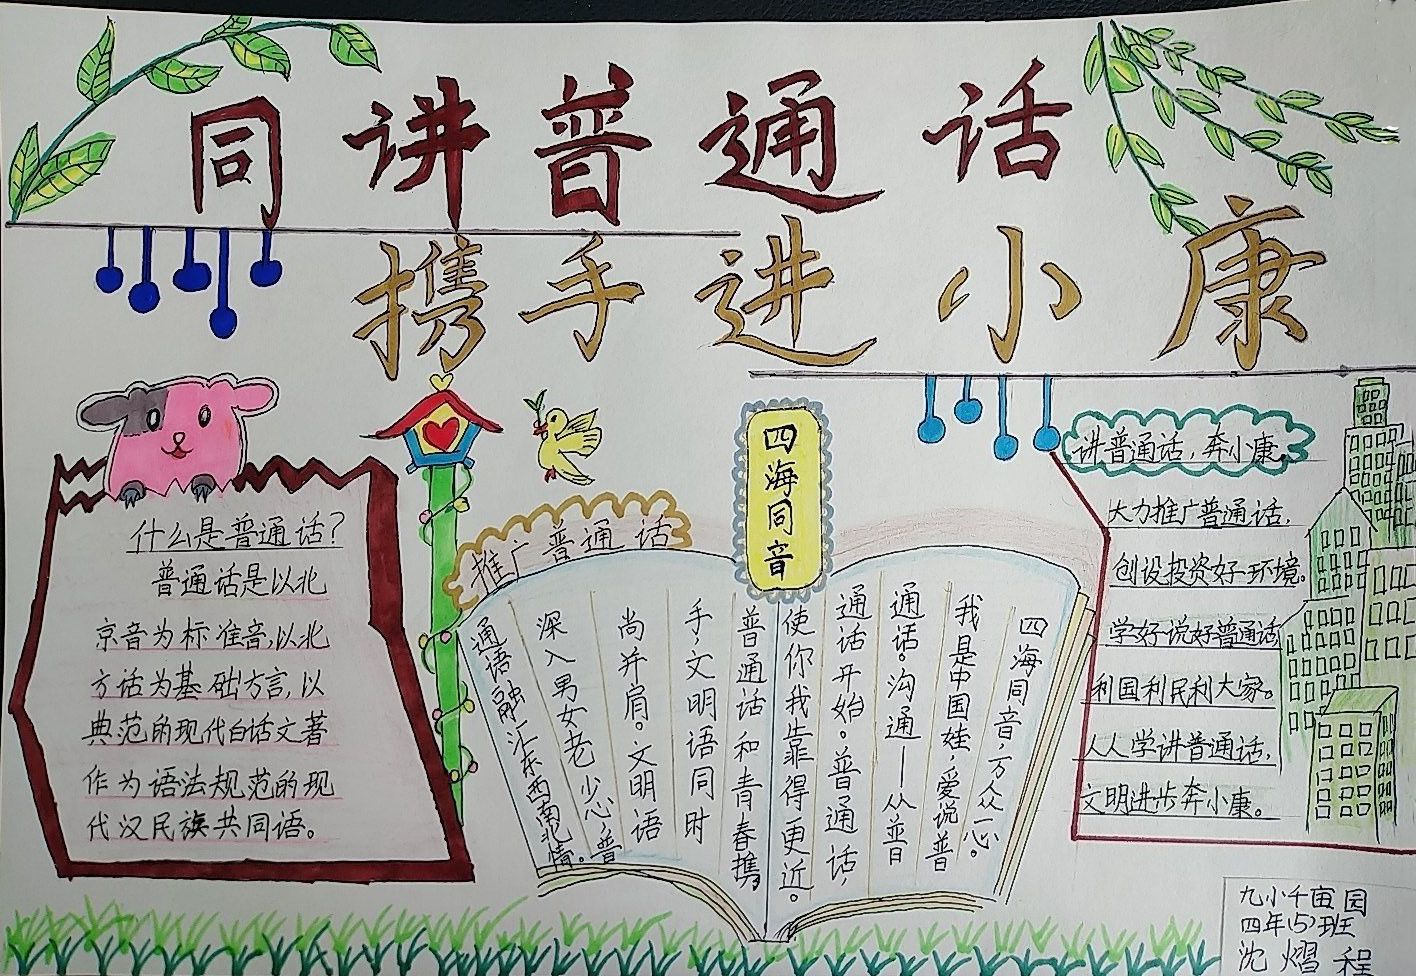 同讲普通话
携手进小康
什么是普通话？
普通话是以北
京音为标准音，以北
方话为基础方言，以
典范的现代白话文著
作为语法规范的现
代汉民族共同语。
推广普通话
四海同音
四海同音，万众一心。
我是中国娃，爱说普
通话。沟通——从普
通话开始。普通话，
使你我靠得更近。
普通话和青春携
手，文明语同时
尚并肩。文明语
深入男女老少心，普
通语融汇东西南北情。
讲普通话，奔小康。
大力推广普通话，
创设投资好环境。
学好说好普通话，
利国利民利大家。
人人学讲普通话，
文明进步奔小康。
九小千亩园
四年(5)班
沈熠程